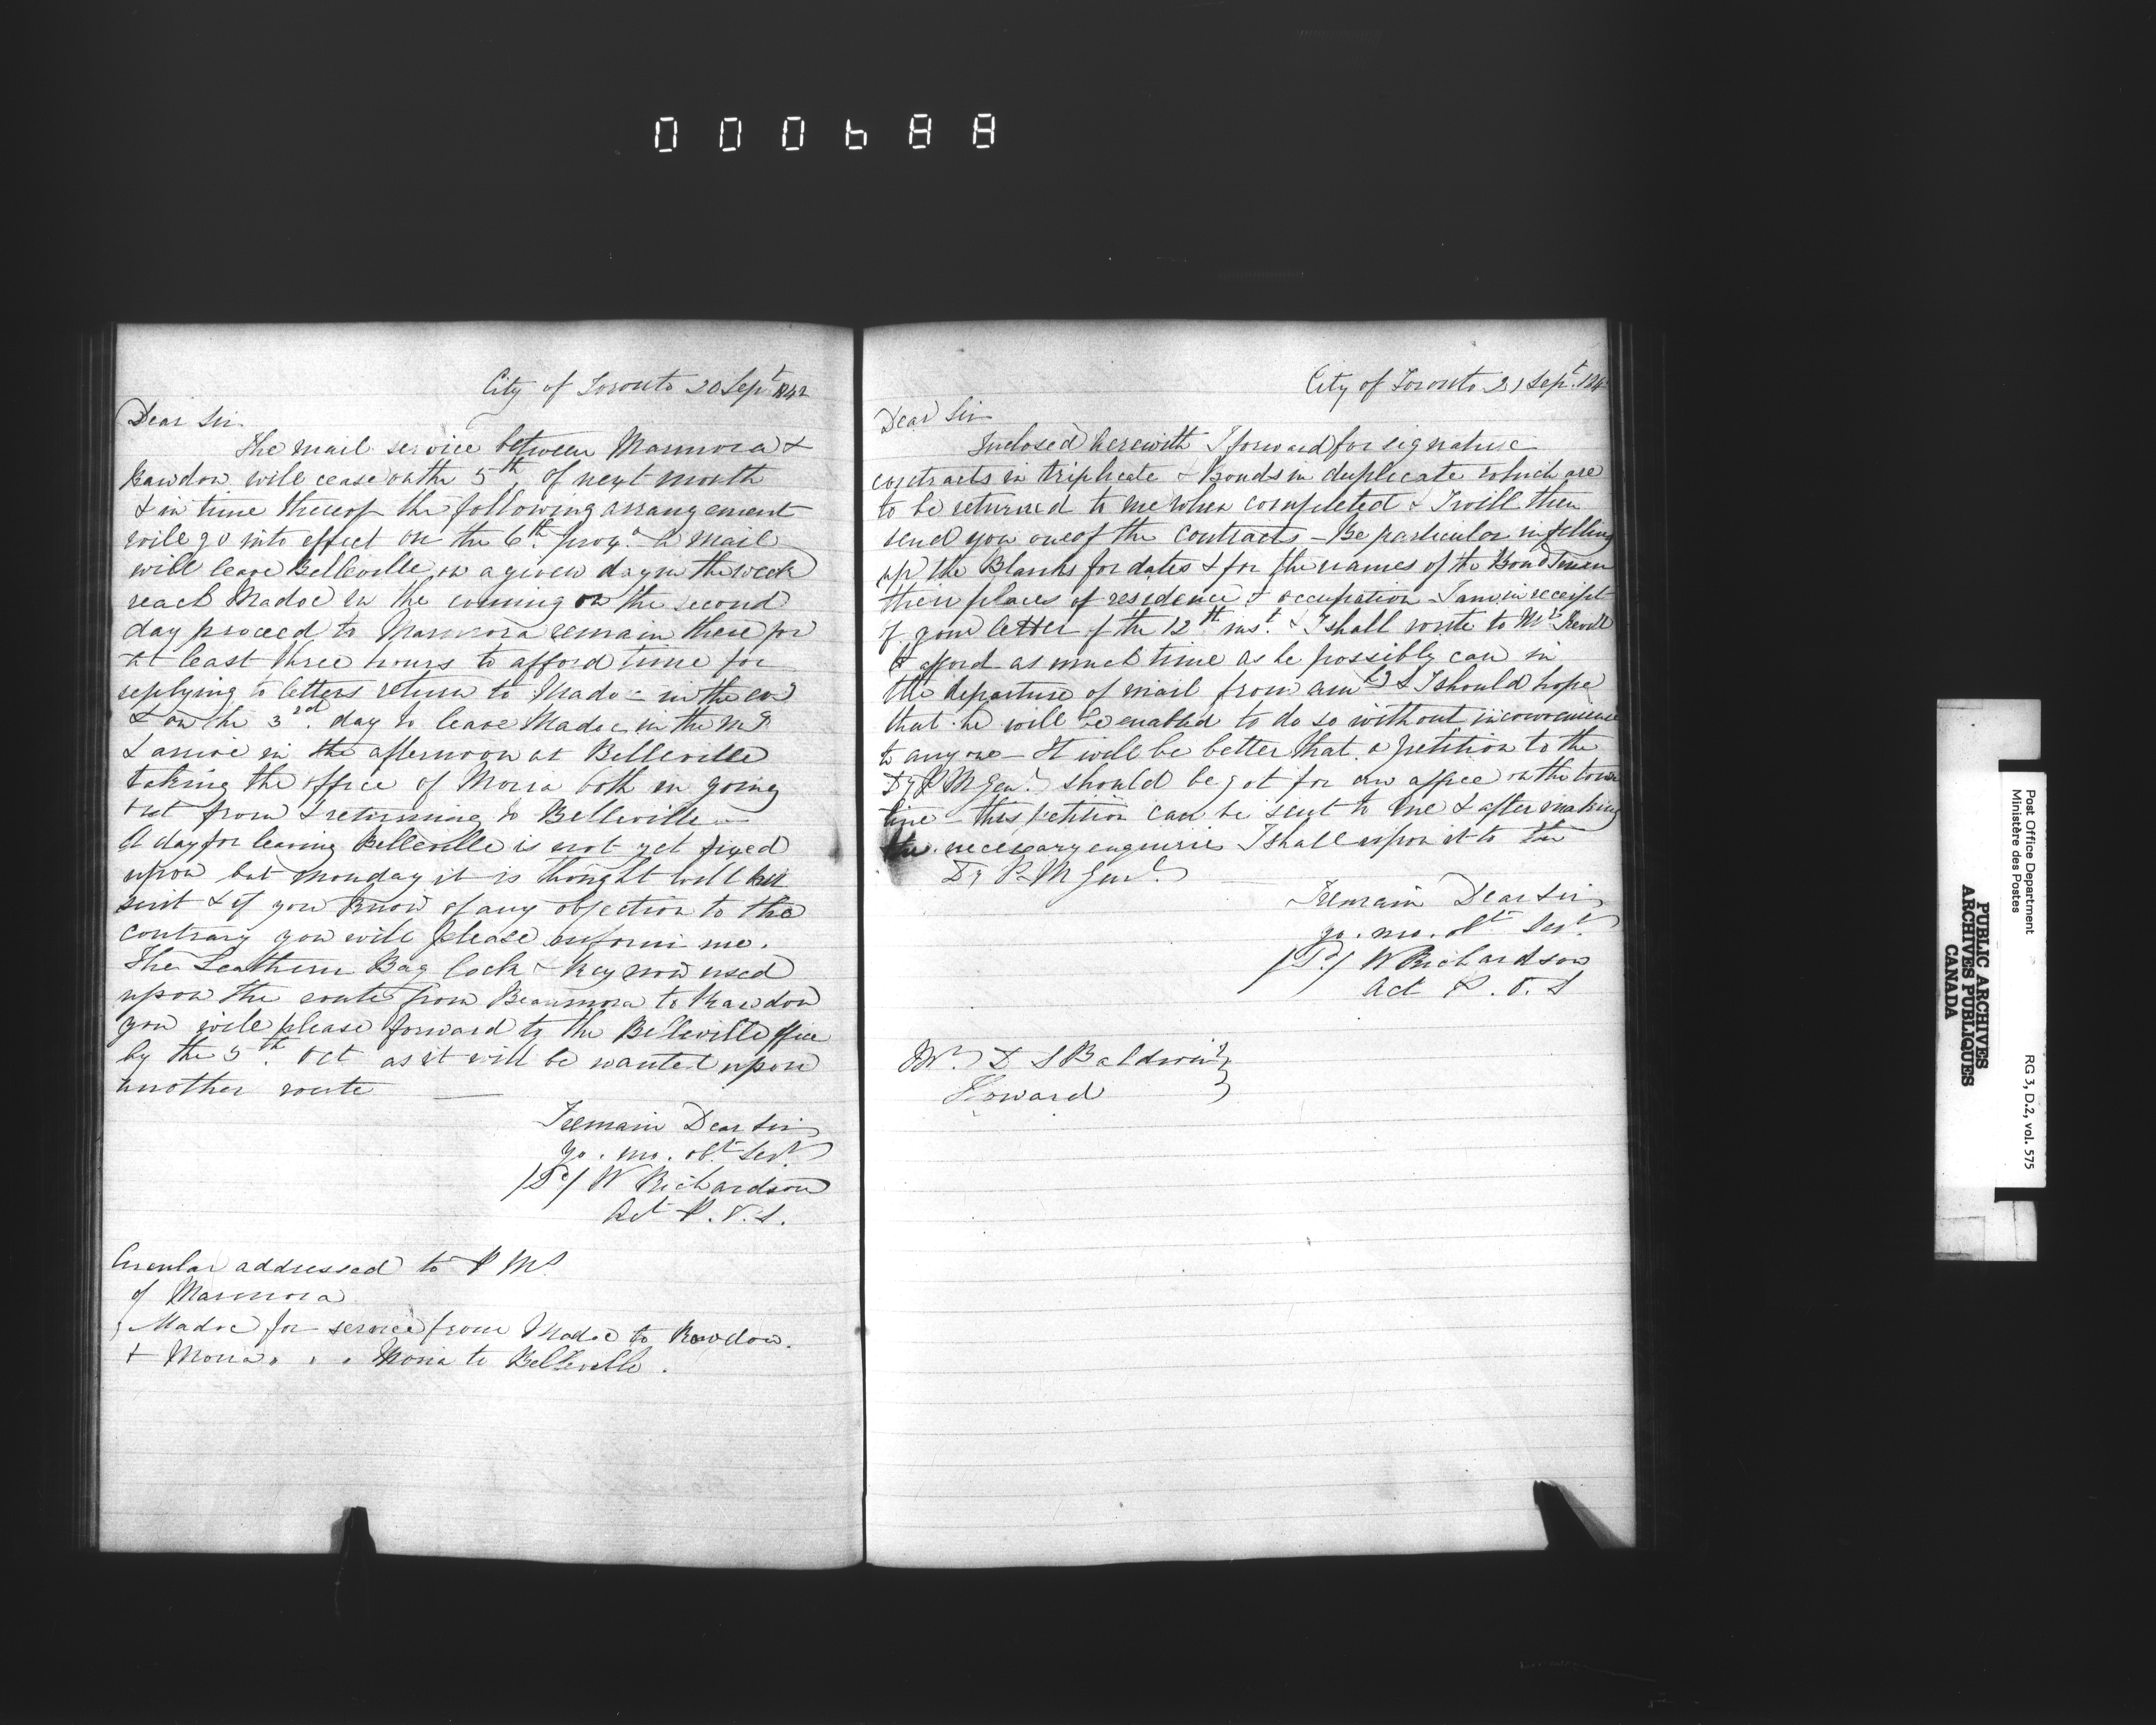 000688
City of Toronto 20 Sept 1842
Dear Sir
The mail service between Marmora &
Rawdon will cease on the 5th of next month
& in time thereof the following arrangement
will go into effect on the 6th proxo. A mail
will leave Belleville on a given day in the week
reach Madoc in the evening on the second
day proceed to Marmora remain there for
at least three hours to afford time for
replying to letters return to Madoc in the evg
& on the 3rd day to leave Madoc in the mg
& arrive in the afternoon at Belleville
taking the office of Moira both in going
out from & returning to Belleville —
A day for leaving Belleville is not yet fixed
upon but Monday it is thought will best
suit & if you know of any objection to the
contrary you will please inform me.
The Leathern Bag lock & key now used
upon the route from Bearmora to Rawdon
you will please forward to the Belleville office
by the 5th Oct as it will be wanted upon
another route —
I remain Dear Sir
yo. mo. obt Servt
/Sd/ W Richardson
Act P. O. S.
Circular addressed to P Ms
of Marmora
Madoc for service from Madoc to Rawdon.
& Moira " " " Moira to Belleville.
City of Toronto 21 Sept. 184
Dear Sir
Inclosed herewith I forward for signature
contracts in triplicate & Bonds in duplicate which are
to be returned to me when completed & I will then
send you one of the contracts – Be particular in filling
up the Blanks for dates & for the names of the Bondsmen
their places of residence & occupation – I am in receipt
of your letter of the 12th inst. & I shall write to Mr
to afford as much time as he possibly can in
the departure of mail from & I should hope
that he will be enabled to do so without inconvenience
to any one – It will be better that a petition to the
Dy P M Genl should be got for an office on the town
line – this petition can be sent to me & after making
the necessary enquiries I shall report it to the
Dy P. M Genl. —
I remain Dear Sir
yo. mo. obt Servt
/Sd/ W Richardson
Act P. O. S
Mr. D S Baldwin }
Howard }
Post Office Department
Ministère des Postes
RG 3, D.2, vol. 575
PUBLIC ARCHIVES
ARCHIVES PUBLIQUES
CANADA